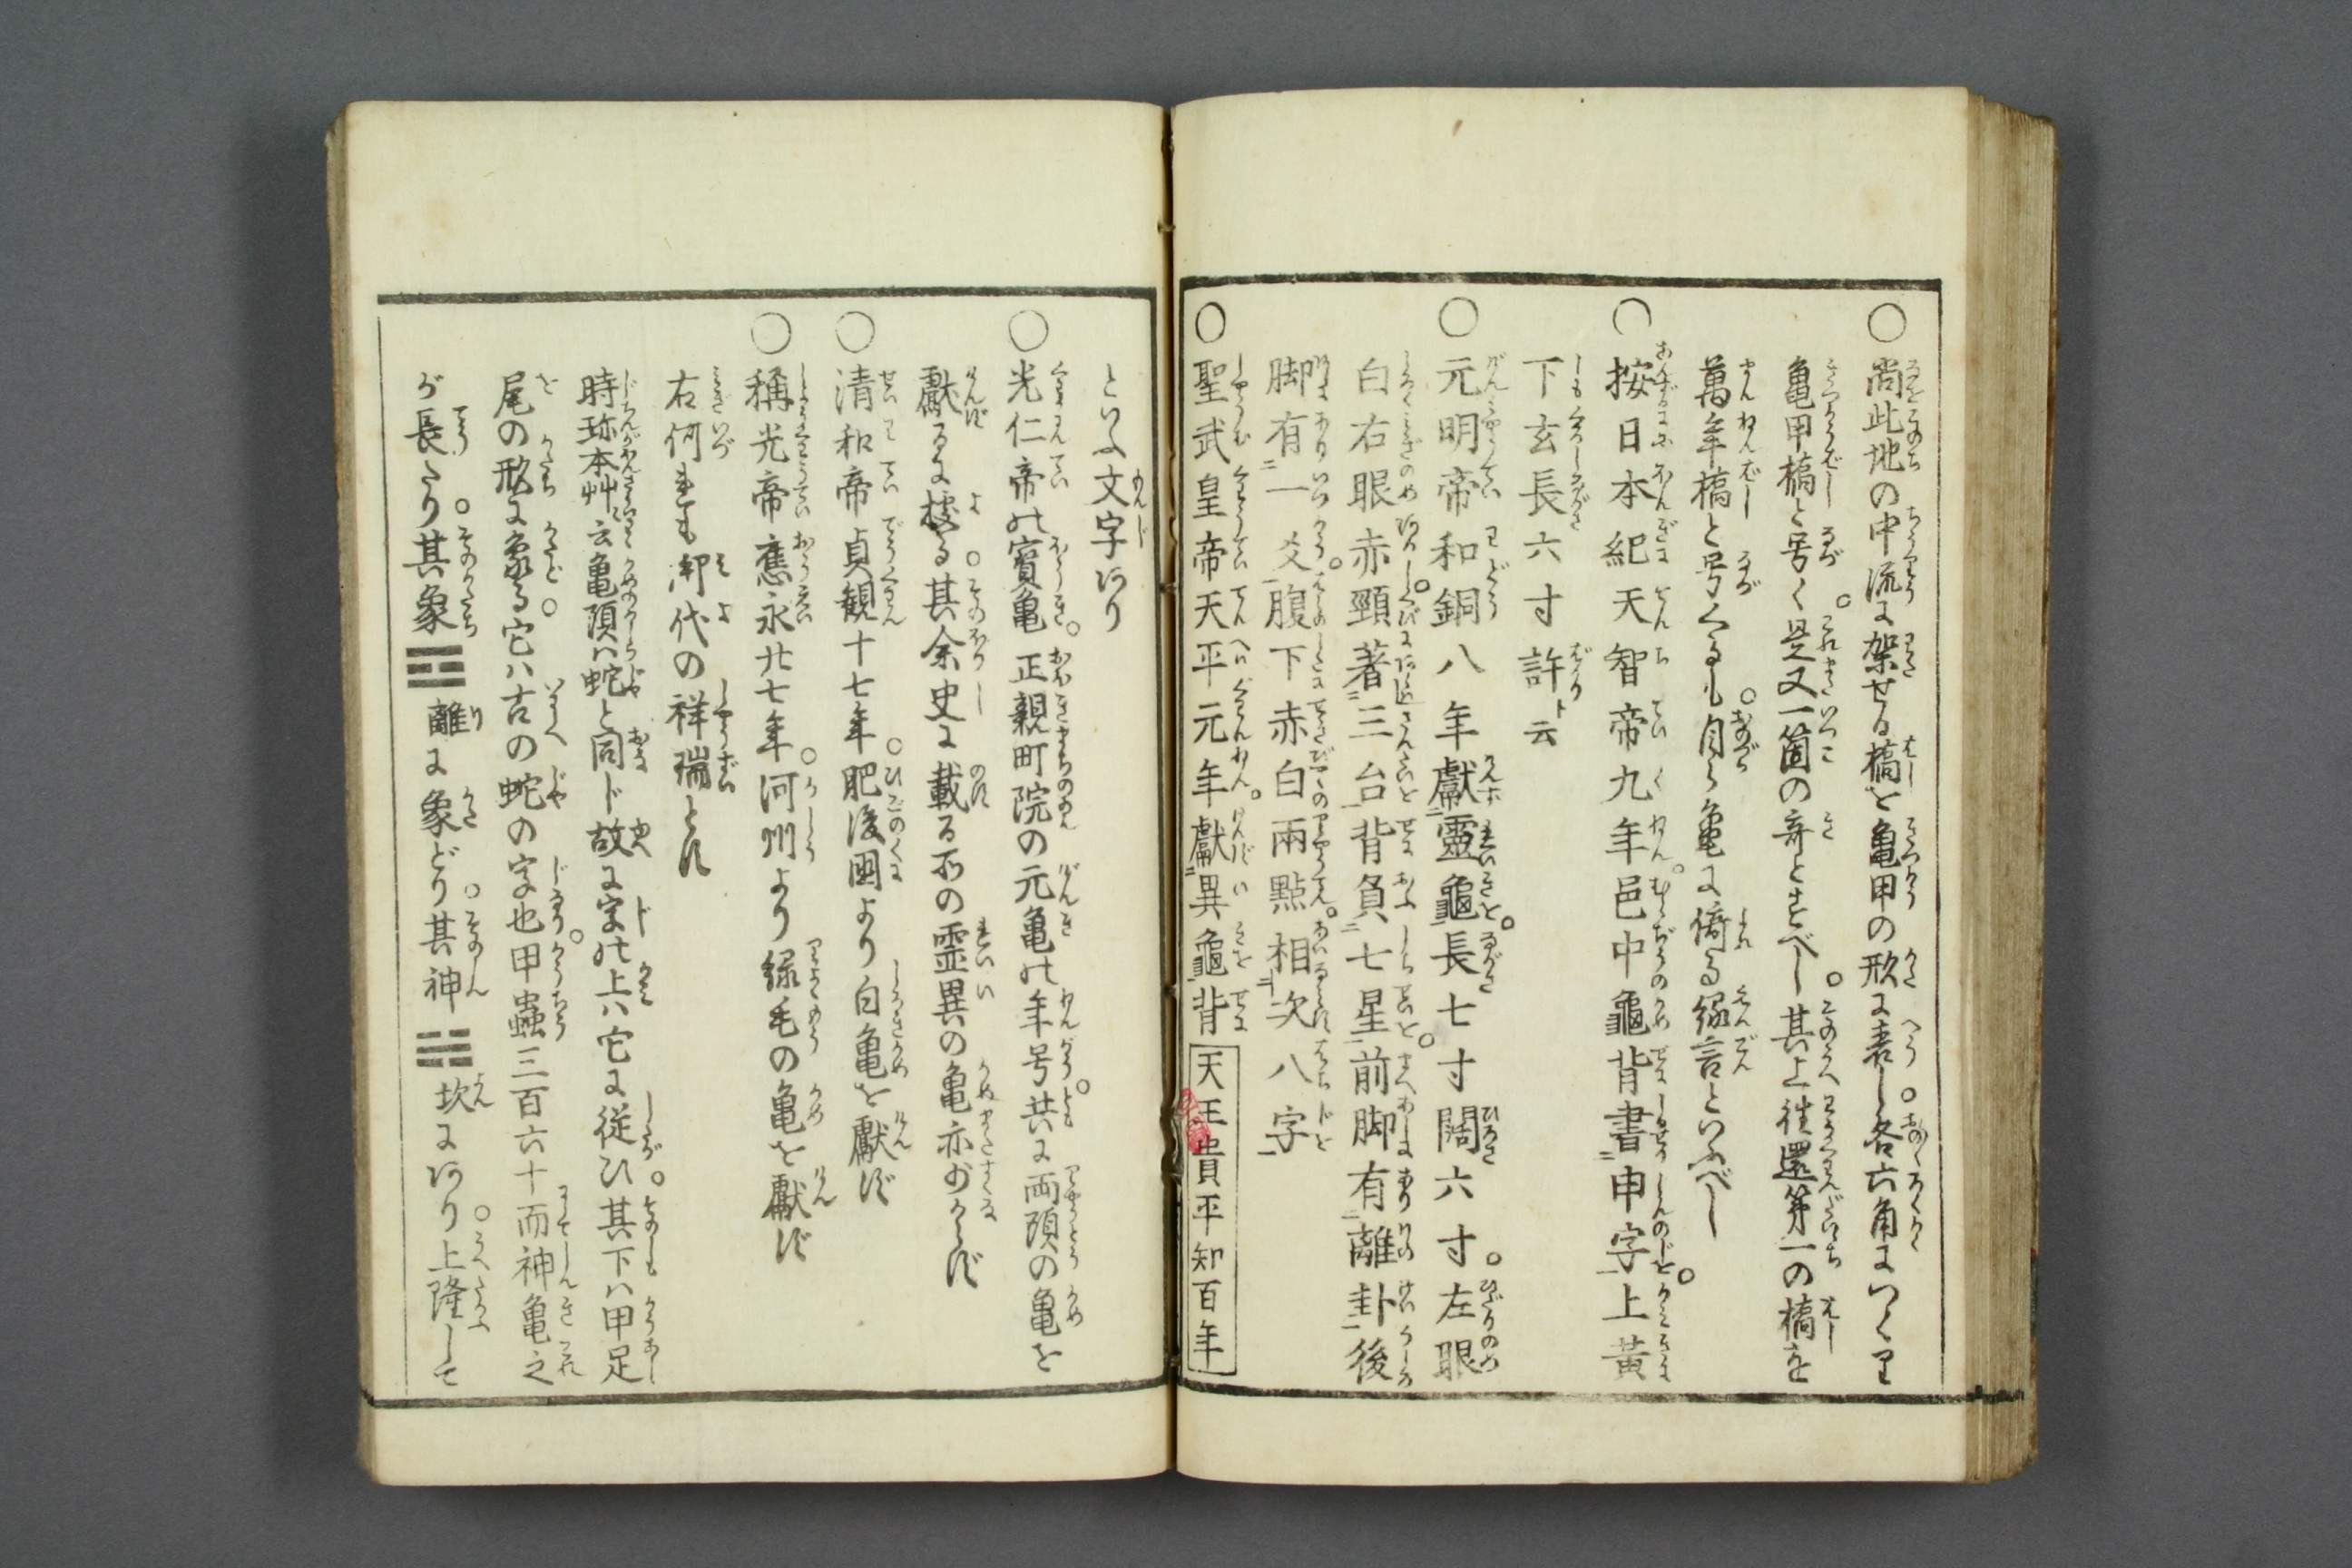 ○尚此地の中流に架せる橋を亀甲の形に表し各六角につくり
亀甲橋と号く是又一箇の奇とすべし其上往還第一の橋を
萬年橋と号くるも自ら亀に倚る縁言といふべし
○按日本紀天智帝九年邑中龜背書申字上黄
下玄長六寸許ト云
○元明帝和銅八年獻靈龜長七寸闊六寸左眼
白右眼赤頸著三台背負七星前脚有離卦後
脚有一爻腹下赤白兩點相次八字
○聖武皇帝天平元年獻異龜背天王貴平知百年
といふ文字あり
○光仁帝の寳亀正親町院の元亀の年号共に両頭の亀を
獻るに拠る其余史に載る所の霊異の亀亦少からず
○清和帝貞観十七年肥後國より白亀を獻ず
○稱光帝應永廿七年河州より緑毛の亀を獻ず
右何れも御代の祥瑞とす
時珍本艸云亀頭ハ蛇と同ド故に字の上ハ它に従ひ其下ハ甲足
尾の形に象る它ハ古の蛇の字也甲蟲三百六十而神亀之
が長たり其象☲離に象どり其神☵坎にあり上隆して